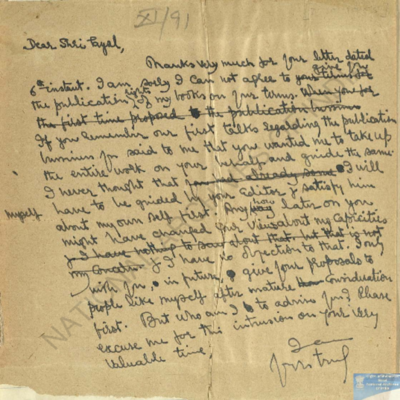 XI/91
Dear Shri Goyal,
Thanks very much for your letter dated
6th instant. I am sorry I can not agree to give you
the publication rights of my books on your terms. When you for
the first time proposed the publication business
If you remember our first talks regarding the publication
business you said to me that you wanted me to take up
the entire work on your behalf and guide the same.
I never thought that I will
have to be guided by your Editor & satisfy him
about my own self first. Any way later on you
myself
might have changed your views about my capacities
& I have nothing to say about that but that is not
my concern & I have no objection to that. I only
wish you, in future, give your proposals to
people like myself after mature consideration
first. But who am I to advise you? Please
excuse me for this intrusion on your very
valuable time.
I am